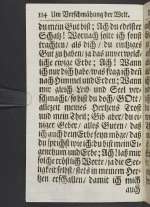 114 Um Verschmähung der Welt.
du mein Gut bist; Ach du edelster
Schatz! Wornach solte ich sonst
trachten/ als dich/ du ewiges
Gut zu haben; ja das unvergäng-
liche ewige Erbe; Ach! Wann
ich nur dich habe was frag ich den
nach Himmel und Erden; Wann
mir gleich Leib und Seel ver-
schmacht/ so bist du doch/ GOtt/
allezeit meines Hertzens Trost
und mein Theil; Gib aber/ du e-
wiger Geber/ alles Guten/ daß
ich auch dem Erbe seyn möge/ daß
du sprichst wie ich du bist mein Ei-
genthum und Erbe; Ach! laß mir
solche tröstlich Worte/ ja die See-
ligkeit selbst/ stets in meinem Her-
tzen erschallen/ damit ich mich
auch